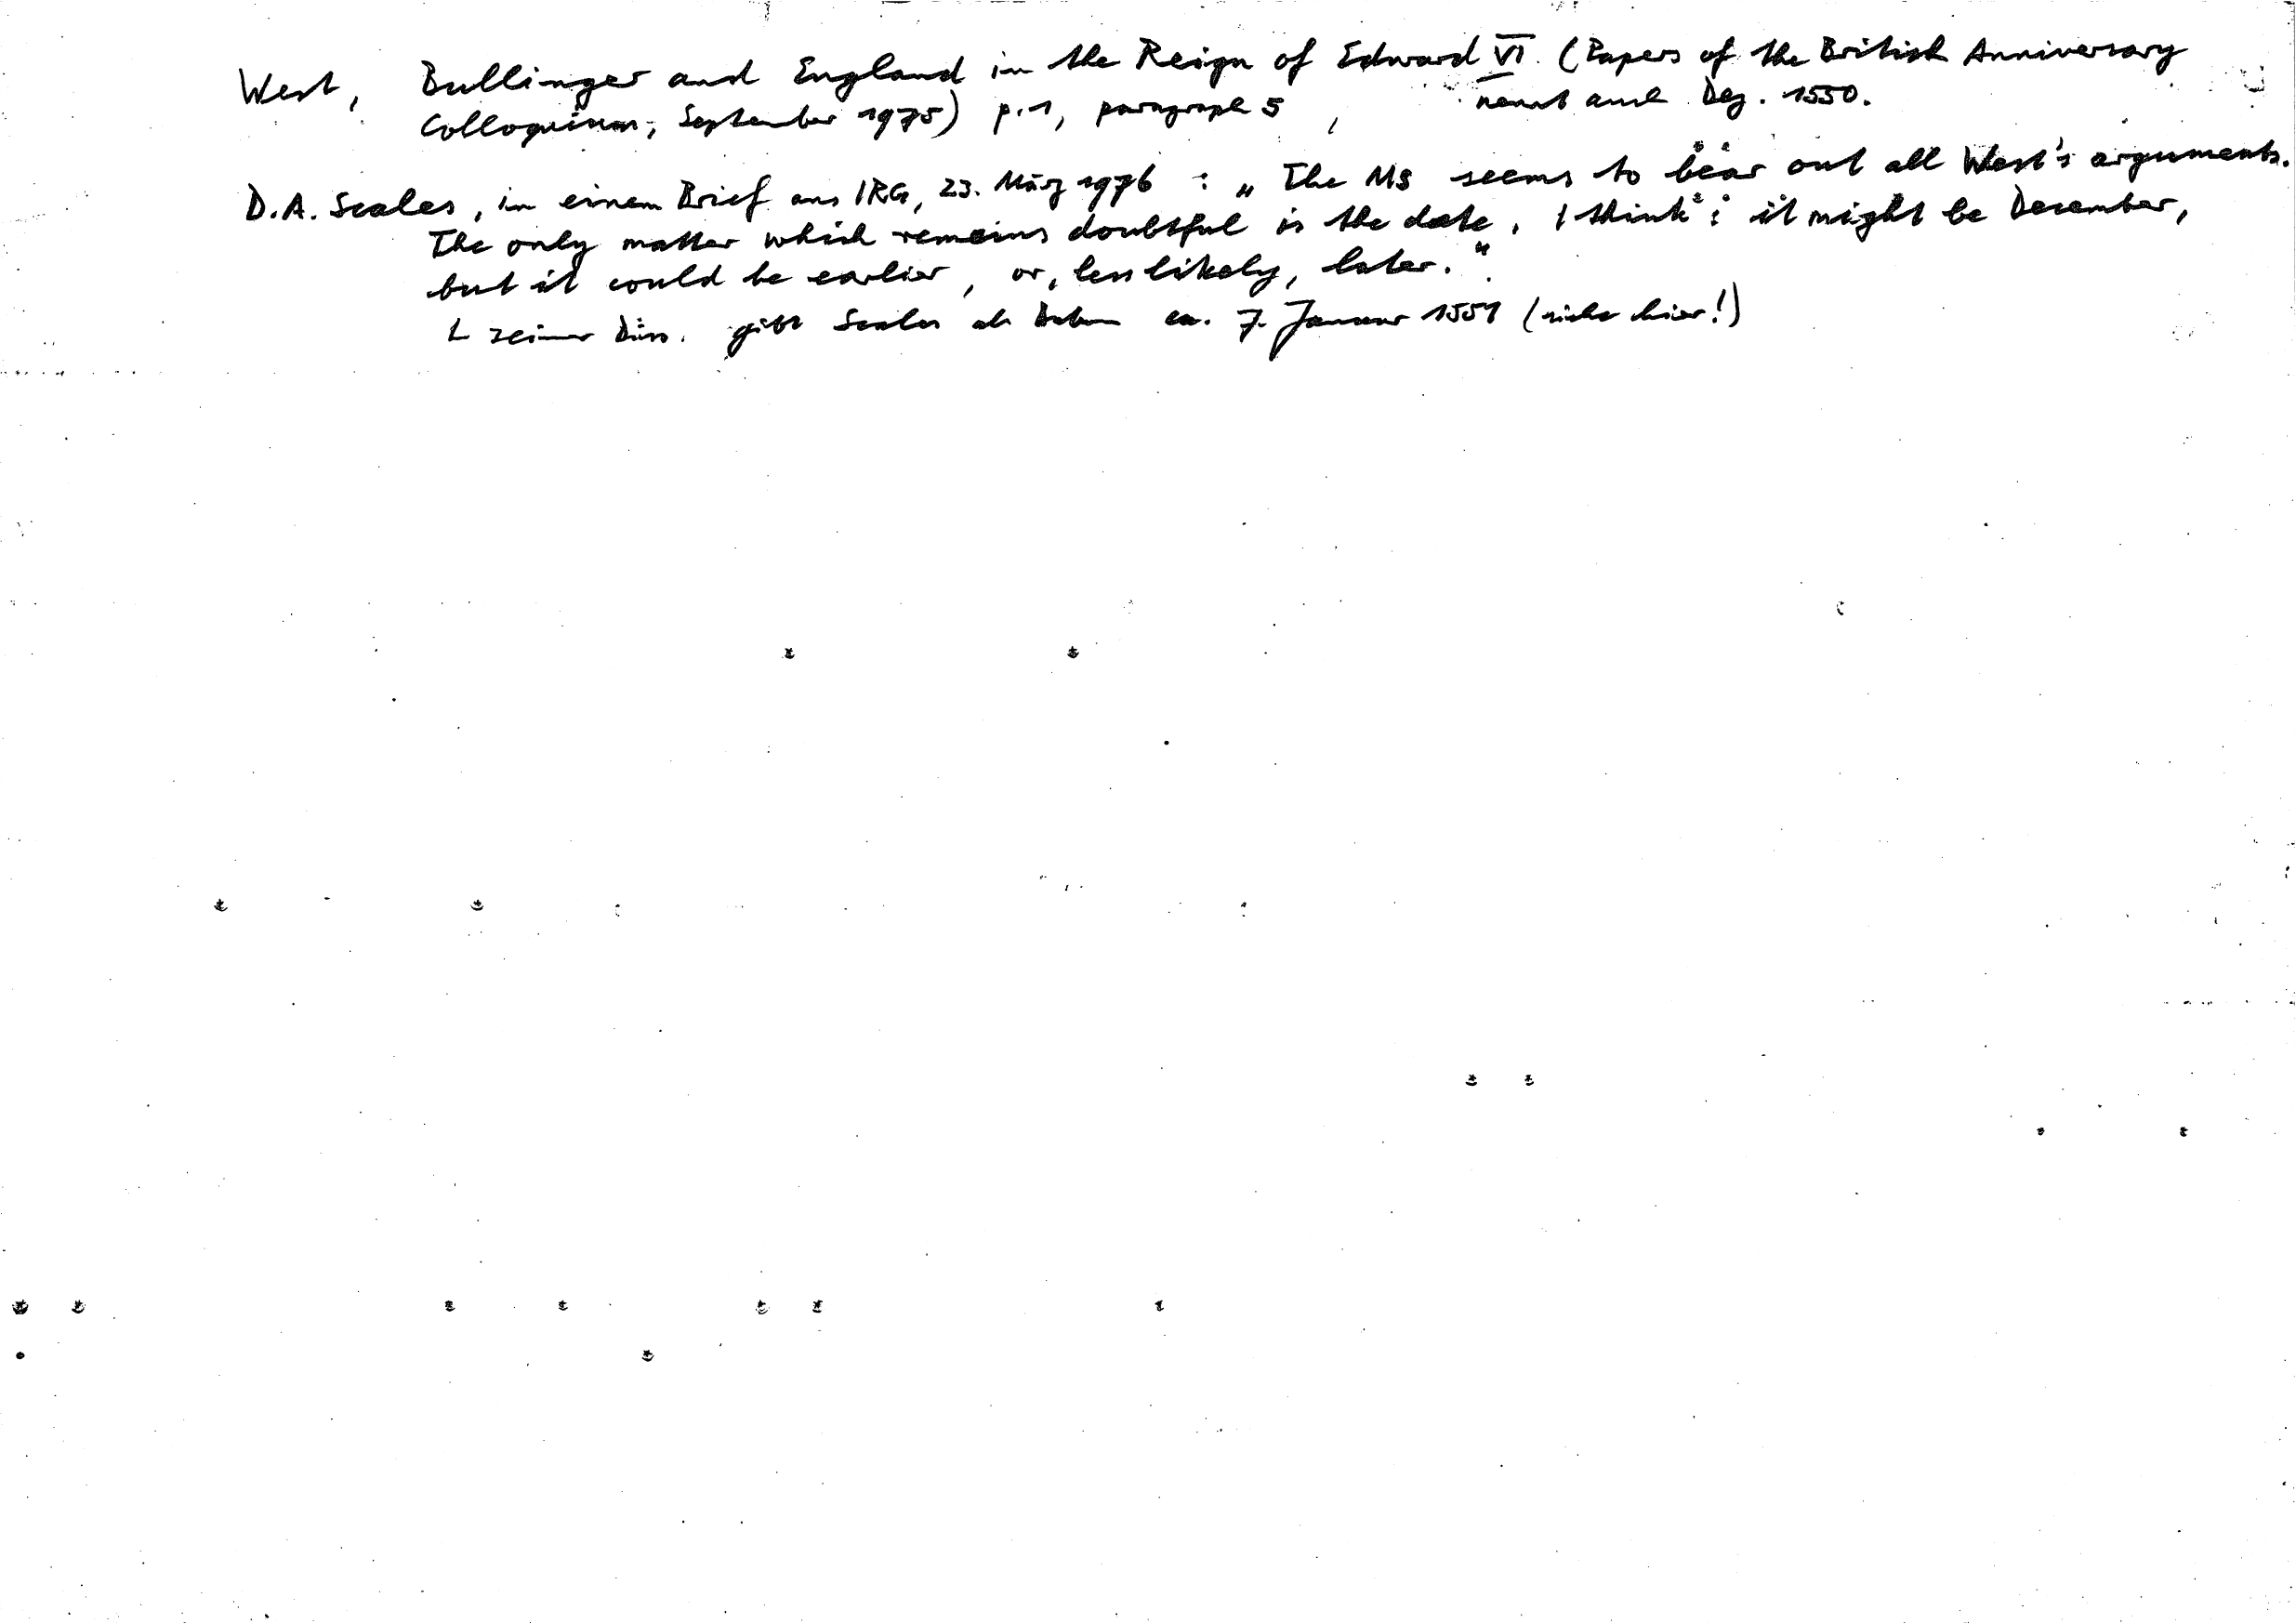 West, Bullinger and England in the Reign of Edward VI. (Papers of the British Anniversary
Colloquium, September 1975) p. 1, paragraph 5, nennt auch Dez. 1550.
D.A. Scales, in einem Brief ans IRG, 23. März 1976 : „The MS seems to bear out all West's arguments.
The only matter which remains doubtful is the date. I think : it might be December,
but it could be earlier, or, less likely, later."
seiner Diss. gibt Scales als Datum ca. 7. Januar 1551 (siehe hier!)